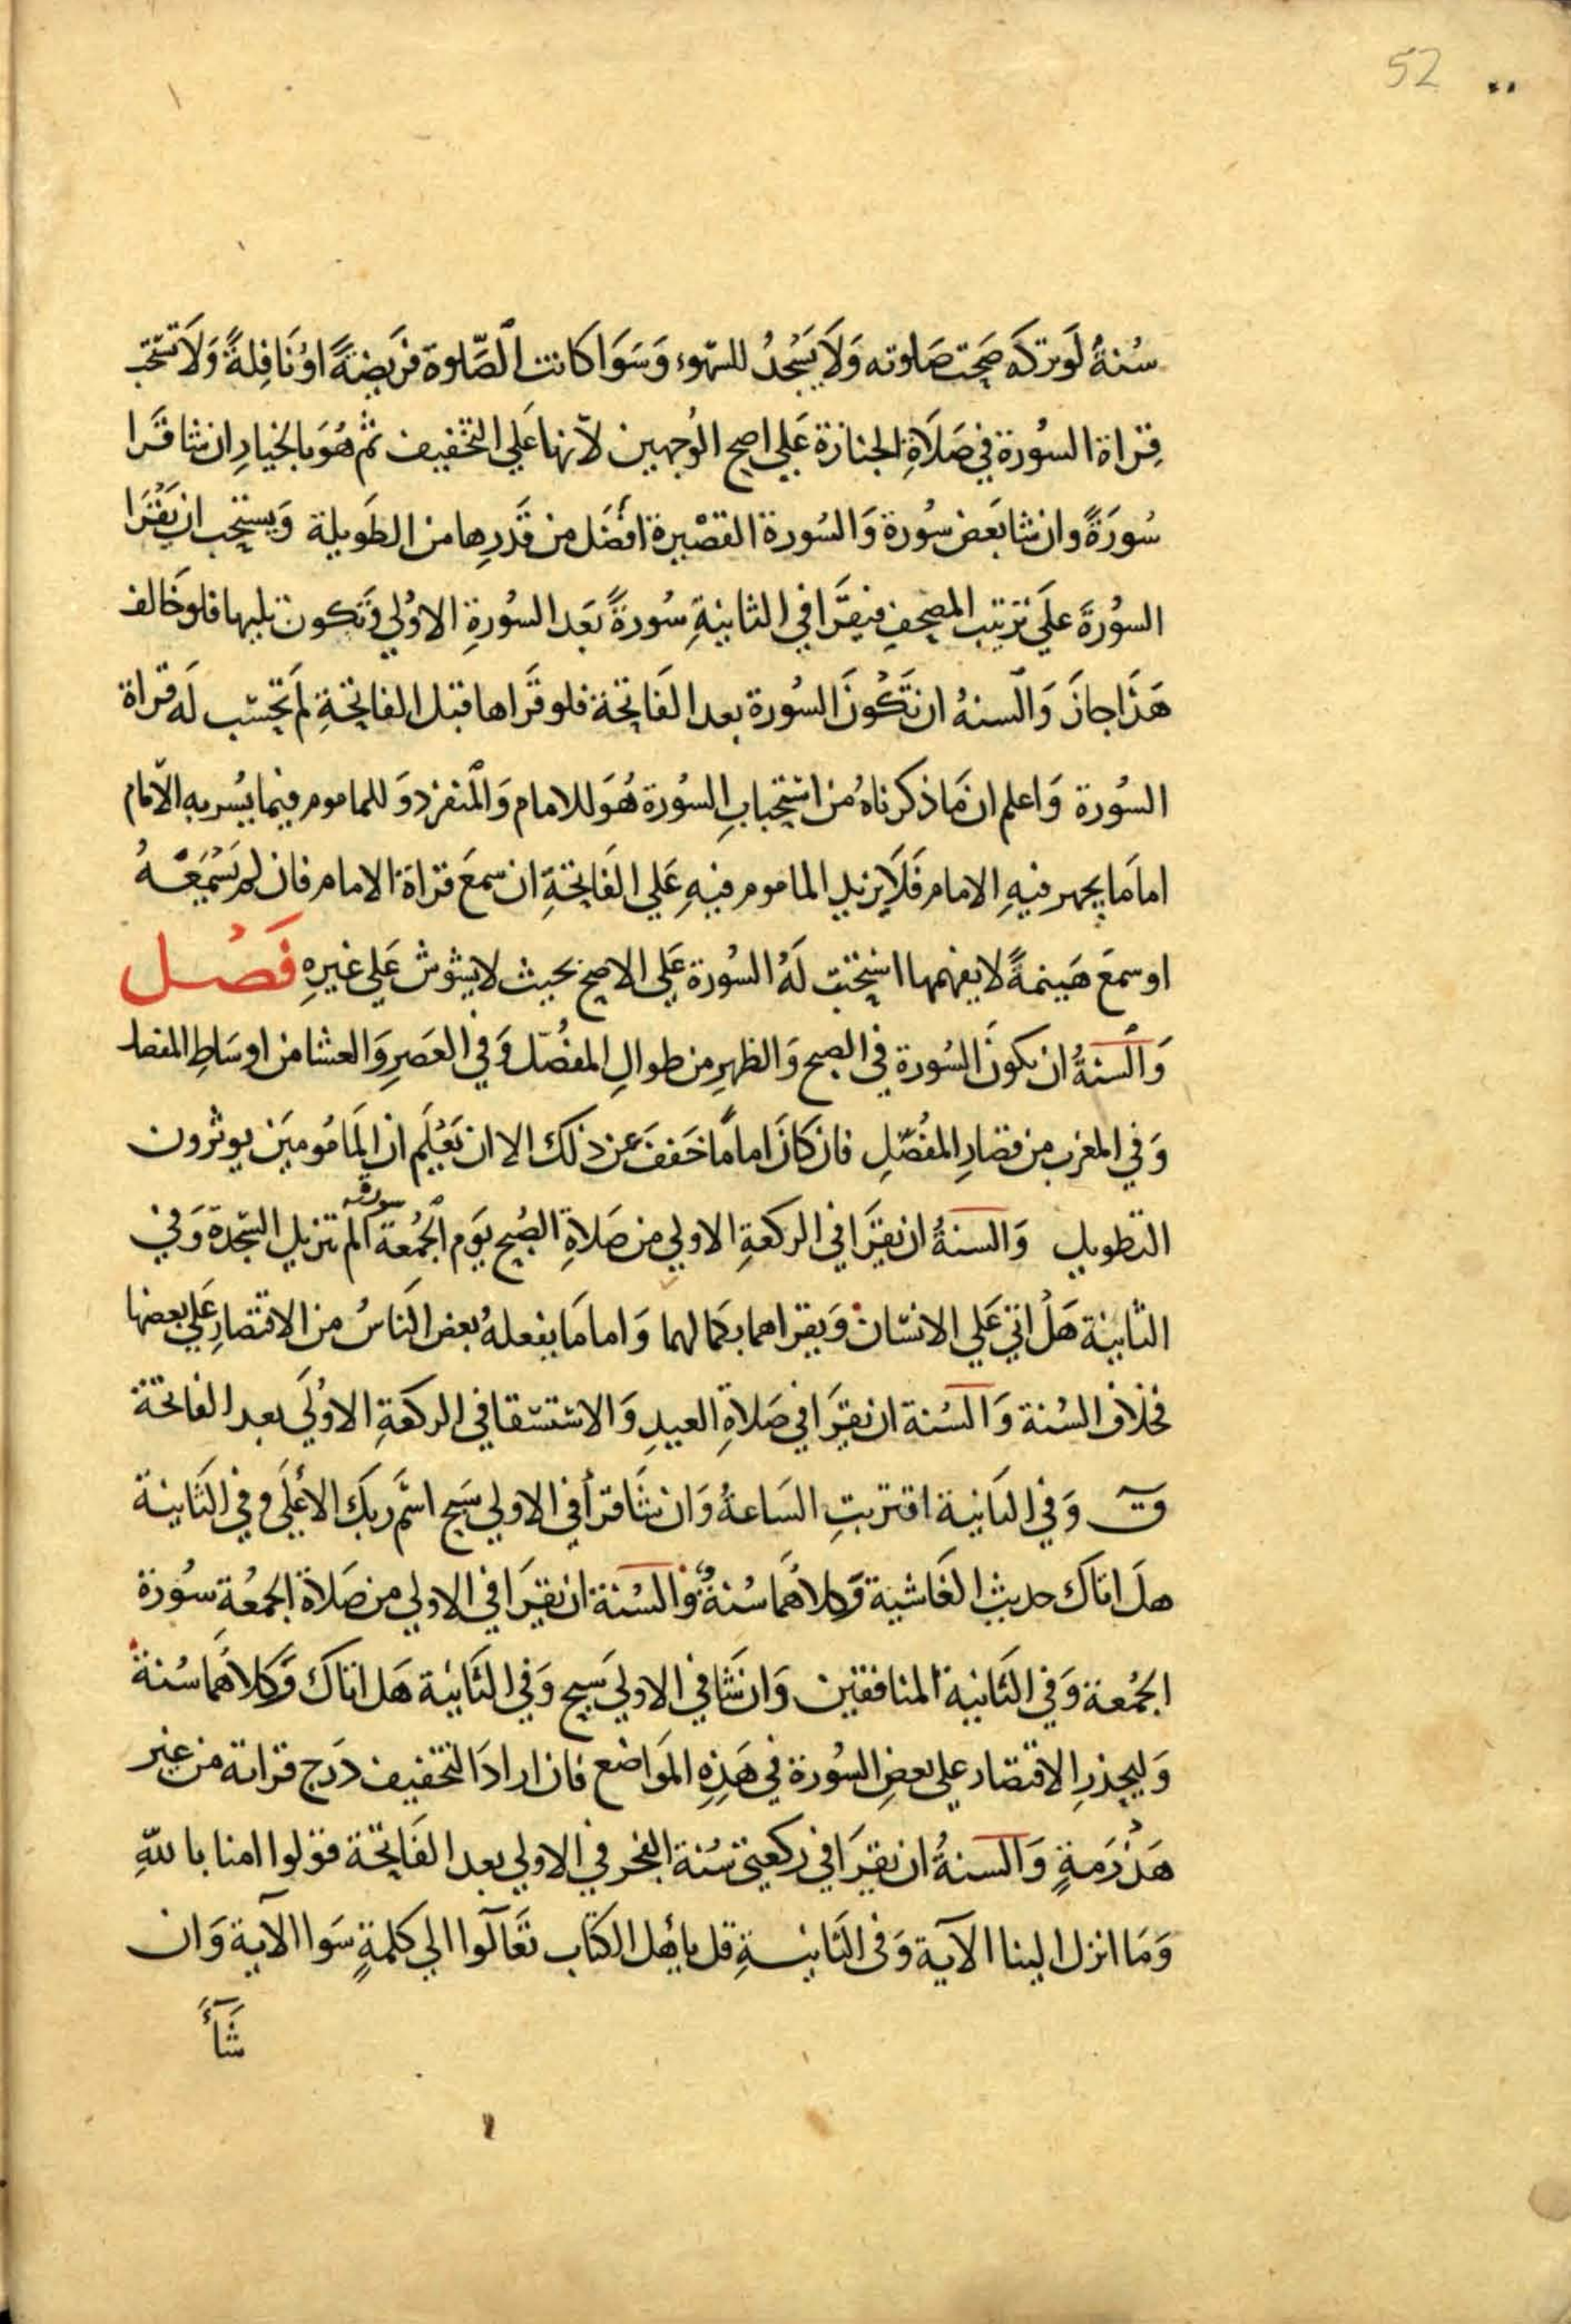 52
سُنةُ لَو تركَه صَحت صَلوته وَلَا يَسْجُدُ للسّهوِ وَسَوَا كانت الصَّلوة فرَيضةً اوْ نَافِلةً وَلَا تستحَب
قِراة السُورة في صَلَاةِ الجنازة عَلي اصح الوُجهين لاَنها عَلي التخفيف ثم هُوَ بالخيارِ ان شا قَرا
سُورَةً وان شا بَعَض سُورة وَالسُورة القصْيرة افضَل من قَدرِها من الطَويلة وَيستحب ان يَقْرَا
السوُرةَ علَي ترَتيب المصحفِ فيقرَا في الثانيةِ سُورةً بَعد السُورةِ الاوُلي وَتكون تليها فلو خَالف
هَذَا جازَ وَالسنهُ ان تَكُونَ السُورة بعد الفَاتحة فلو قَراها قبل الفاتحةِ لَم تحتسَب لَه قراة
السُورة وَاعلم ان مَا ذكرناهُ من استحبابِ السُورة هُوَ للامام وَالمنفرد وَللماموم فيما يُسر به الامَام
اما مَا يجهر فيهِ الامام فَلَا يزيد الماموم فيهِ عَلي الفَاتحةِ ان سمعَ قراة الامام فان لم يَسْمَعْهُ
او سمعَ هَينمةً لا يفهمها استحبَت لَهُ السُورة عَلي الاصح بحيث لا يشوش عَلي غيرِهِ فَصْل
وَالسنةُ ان يكونَ السُورة في الصبح وَالظهرِ من طوالِ المفصّل وَفي العَصرِ وَالعشا من اوسَاطِ المفصل
وَفي المغرب من قصَارِ المفُصّلِ فان كَانَ امامًا خَففَ عَن ذلك الا ان يَعْلَم ان المَامُومينَ يوثرون
التطويل وَالسنةُ ان يقَرا في الركعةِ الاولي من صَلاةِ الصُبح يَوم الجُمُعة سورة الم تنزيل السَجدة وَفي
الثانية هَلْ اتيَ عَلي الانسَان وَيقراهما بكمَالهما وَاما مَا يفعلهُ بعض النَاسُ من الاقتصارِ عَلي بعضها
فخلاف السُنة وَالسُنة ان يقَرا في صَلاةِ العيدِ وَالاستسقا في الركعَةِ الاوُلَي بعد الفاتحة
ق وَفي الثانية اقتربتِ السَاعةُ وَان شَا قرأ في الاولي سَبح اسَم رَبكَ الأعلَي وفي الثَانية
هلَ اتاكَ حديث الغَاشية وَكلاهُمَا سُنةٌ وَالسُنة ان يقَرا في الاولي من صَلاة الجمُعةِ سُورة
الجمُعة وَفي الثَانية المنافقين وَان شَا في الاولي سَبح وَفي الثَانية هَل اتاكَ وَكلاهُمَا سُنة
وَليحذرِ الاقتصار علي بعضِ السُورة في هَذِهِ المَواضع فان ارادَ التخفيف درَج قراته من غير
هَذْرَمةٍ وَالسنةُ ان يقَرا في ركعتي سُنة الفجر في الاولي بعد الفَاتحة قولوا امنا باللهِ
وَمَا انزل الينا الآية وَفي الثَانيةِ قل يا أهل الكتاب تعَالوا الي كلمةٍ سَوا الآية وَان
شَآءَ